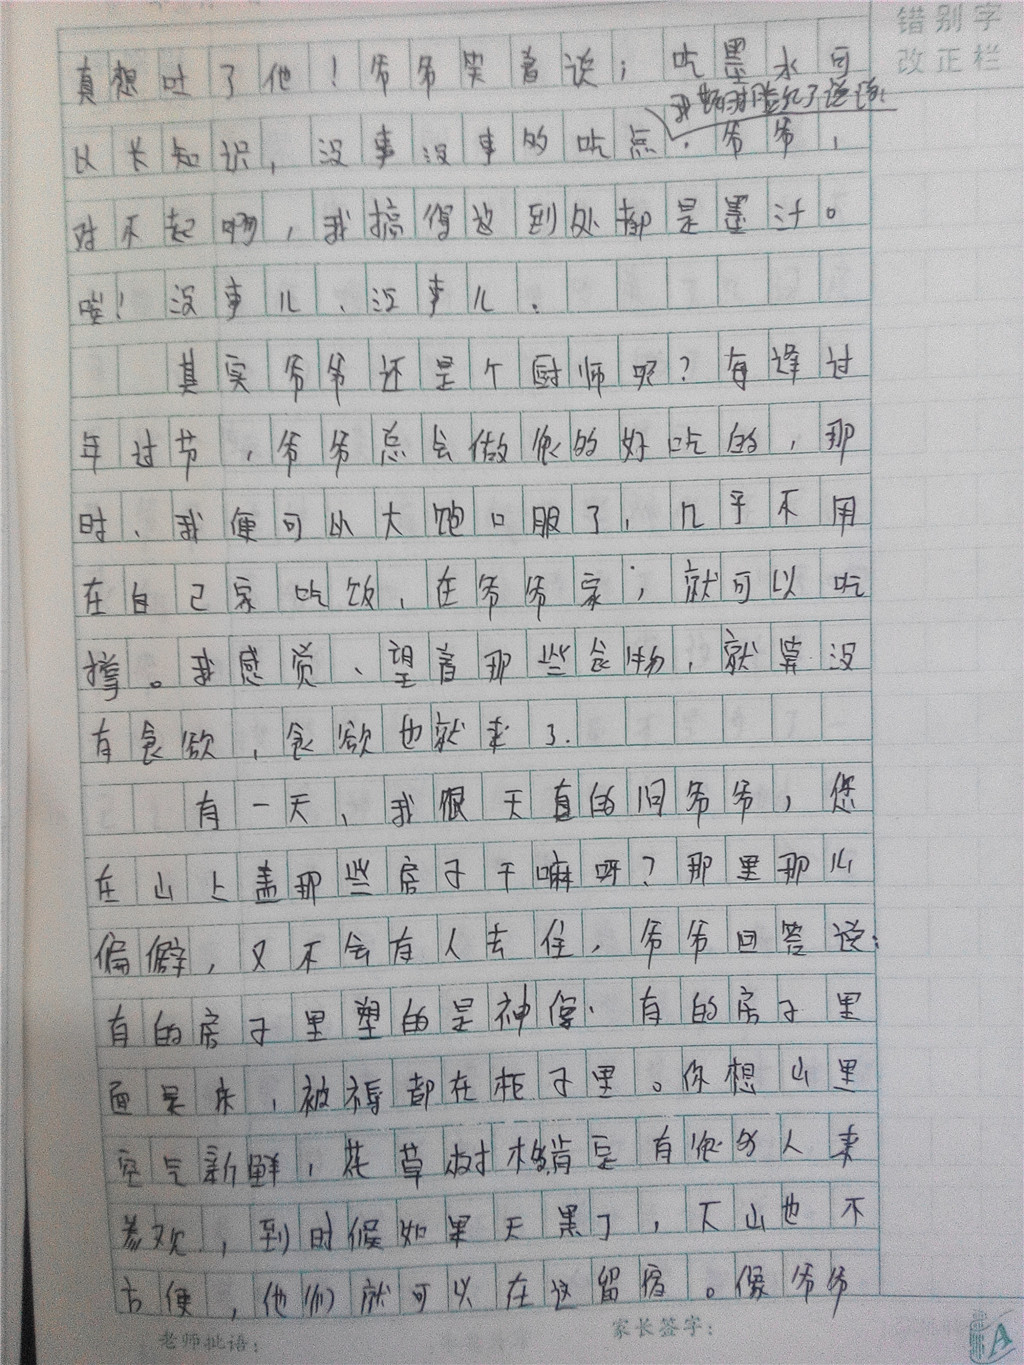 错别字
改正栏
真想吐了他！爷爷笑着说；吃墨水可
我顿时脸红了说道：
以长知识，没事没事的吃点．爷爷，
对不起啊，我搞得这到处都是墨汁。
唉！没事儿、没事儿．
其实爷爷还是个厨师呢？每逢过
年过节，爷爷总会做很的好吃的，那
时、我便可以大饱口服了，几乎不用
在自己家吃饭，在爷爷家；就可以吃
撑。我感觉、望着那些食物，就算没
有食欲，食欲也就来了．
有一天、我很天真的问爷爷，您
在山上盖那些房子干嘛呀？那里那么
偏僻，又不会有人去住，爷爷回答说：
有的房子里塑的是神像．有的房子里
面是床，被褥都在柜子里。你想山里
空气新鲜，花草树木肯定有很多人来
参观，到时候如果天黑了，下山也不
方便，他们就可以在这留宿。像爷爷
老师批语：
家长签字：
A